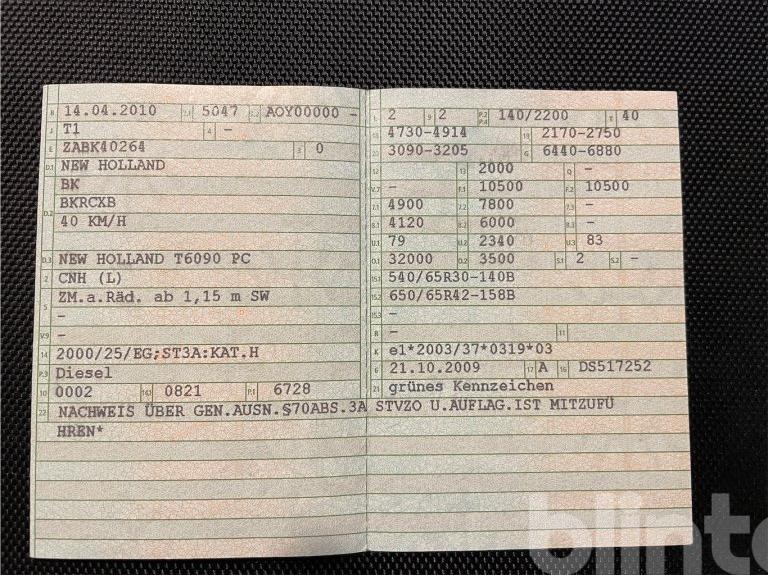 B 14.04.2010 2.1 5047 2.2 AOY00000 -
J T1 4 -
E ZABK40264 3 0
D.1 NEW HOLLAND
BK
D.2 BKRCXB
40 KM/H
D.3 NEW HOLLAND T6090 PC
2 CNH (L)
5 ZM.a.Räd. ab 1,15 m SW
-
V.9 -
14 2000/25/EG;ST3A:KAT.H
P.3 Diesel
10 0002 14.1 0821 P.1 6728
22 NACHWEIS ÜBER GEN.AUSN.§70ABS.3A STVZO U.AUFLAG.IST MITZUFÜ
HREN*
L 2 9 2 P.2 P.4 140/2200 T 40
18 4730-4914 19 2170-2750
20 3090-3205 G 6440-6880
12 13 2000 Q -
V.7 - F.1 10500 F.2 10500
7.1 4900 7.2 7800 7.3 -
8.1 4120 8.2 6000 8.3 -
U.1 79 U.2 2340 U.3 83
O.1 32000 O.2 3500 S.1 2 S.2 -
15.1 540/65R30-140B
15.2 650/65R42-158B
15.3 -
R - 11
K e1*2003/37*0319*03
6 21.10.2009 17 A 16 DS517252
21 grünes Kennzeichen
blinto